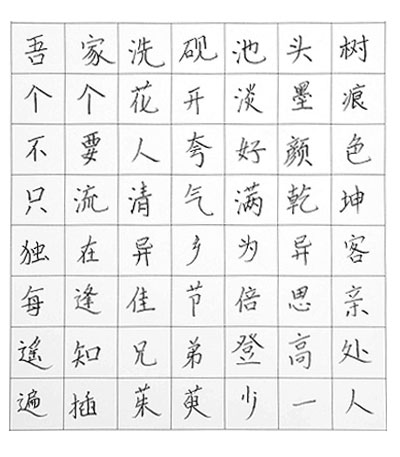 吾家洗砚池头树
个个花开淡墨痕
不要人夸好颜色
只流清气满乾坤
独在异乡为异客
每逢佳节倍思亲
遥知兄弟登高处
遍插茱萸少一人